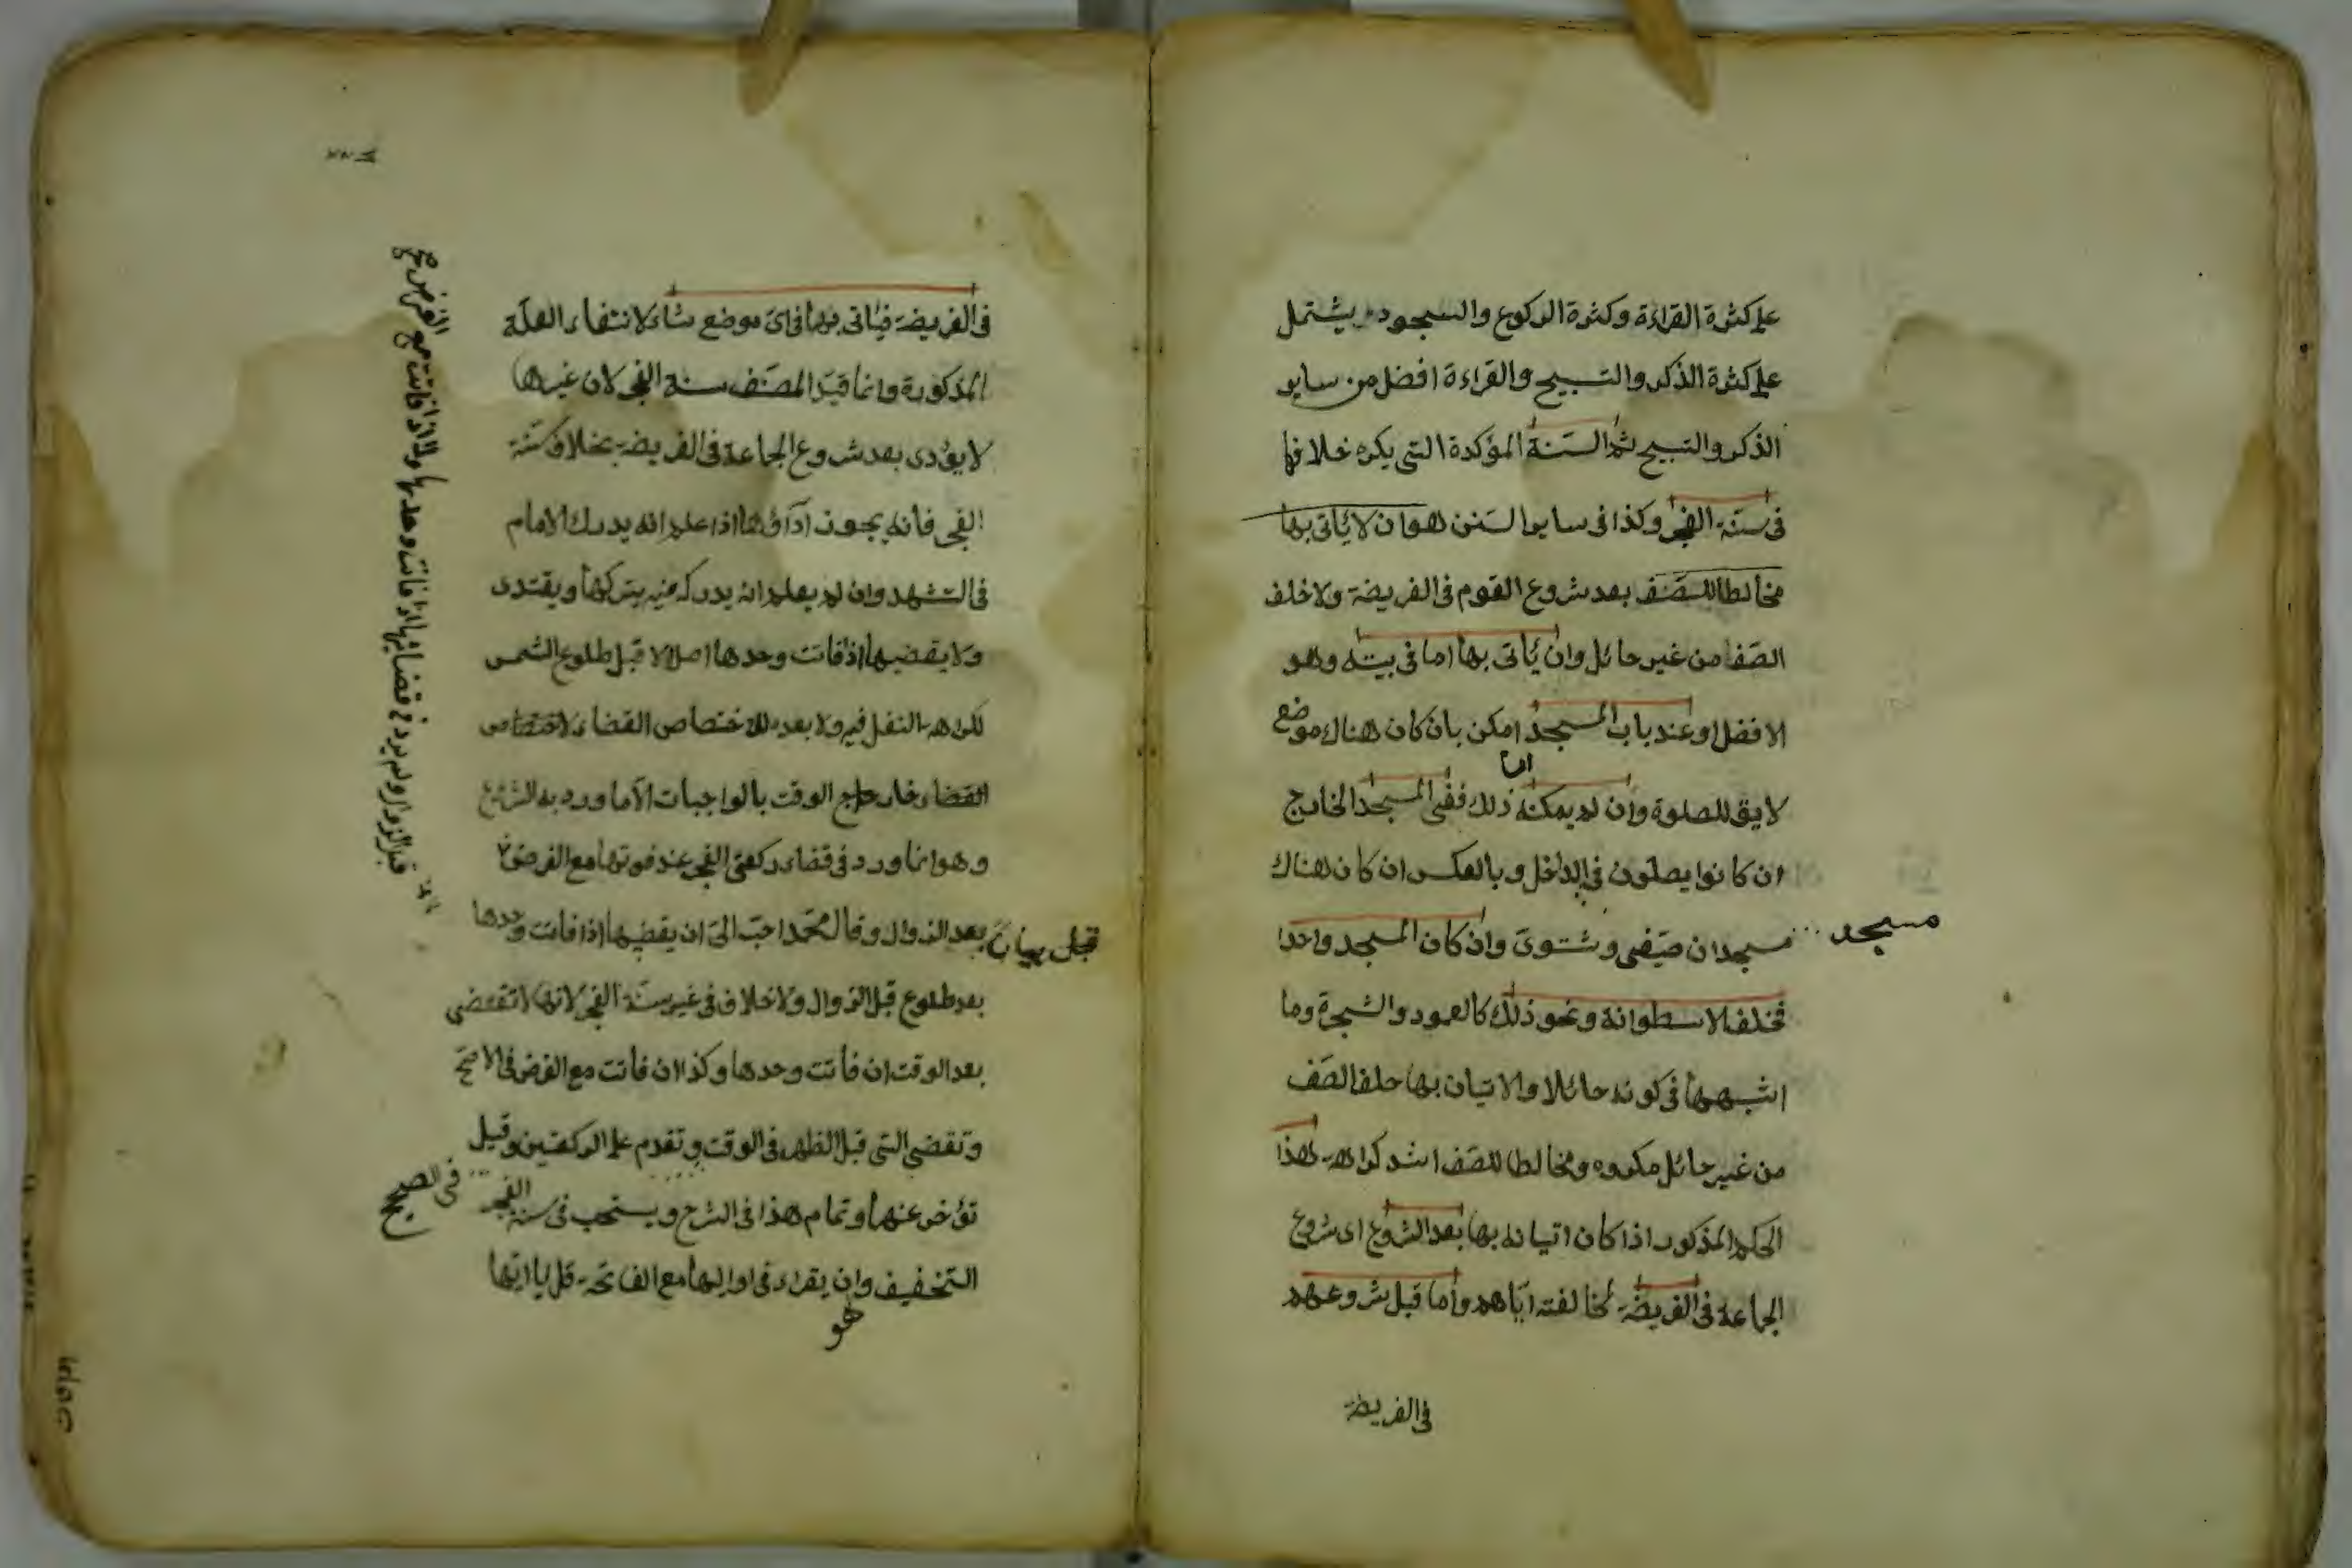 على كثرة القراءة وكثرة الركوع والسجود يشتمل
على كثرة الذكر والتسبيح والقراءة افضل من ساير
الذكر والتسبيح ثم السنة المؤكدة التى يكره خلافها
فى سنة الفجر وكذا فى ساير السنن هو ان لا يأتى بها
مخالطا للصف بعد شروع القوم فى الفريضة ولا خلف
الصف من غير حائل وان يأتى بها اما فى بيته وهو
الافضل او عند باب المسجد امكن بان كان هناك موضع
ان
لايق للصلوة وان لم يمكنه ذلك ففى المسجد الخارج
ان كانوا يصلون فى الداخل وبالعكس ان كان هناك
مسجد
مسجدان صيفى وشتوى وان كان المسجد واحدا
فخلف الاسطوانة ونحو ذلك كالعمود والشجرة وما
اشبهها فى كونه حائلا والاتيان بها خلف الصف
من غير حائل مكروه ومخالطا للصف اشد كراهة هذا
الحكم المذكور اذا كان اتيانه بها بعد الشروع اى شروع
الجماعة فى الفريضة لمخالفته اياهم واما قبل شروعهم
فى الفريضة
فى الفريضة فيأتى بها فى اى موضع شاء لانتفاء العلة
المذكورة وانما قيد المصنف سنة الفجر لان غيرها
لا يؤدى بعد شروع الجماعة فى الفريضة بخلاف سنة
الفجر فانه يجوز اداؤها اذا علم انه يدرك الامام
فى التشهد وان لم يعلم انه يدركه فيه يتركها ويقتدى
ولا يقضيها اذا فاتت وحدها اصلا لا قبل طلوع الشمس
لكراهة النفل فيه ولا بعده لاختصاص القضاء
القضاء خارج الوقت بالواجبات الا ما ورد به الشرع
وهو انما ورد فى قضاء ركعتى الفجر عند فوتها مع الفرض
بعد الزوال وقال محمد احب الى ان يقضيها اذا فاتت وحدها
بعد طلوع قبل الزوال ولا خلاف فى غير سنة الفجر لانها لا تقضى
بعد الوقت ان فاتت وحدها وكذا ان فاتت مع الفرض فى الاصح
وتقضى التى قبل الظهر فى الوقت وتقدم على الركعتين وقيل
فى الصحيح
تؤخر عنهما وتمام هذا فى الشرح ويستحب فى سنة الفجر
التخفيف وان يقراء فى اوليها مع الفاتحة قل يا ايها
هو